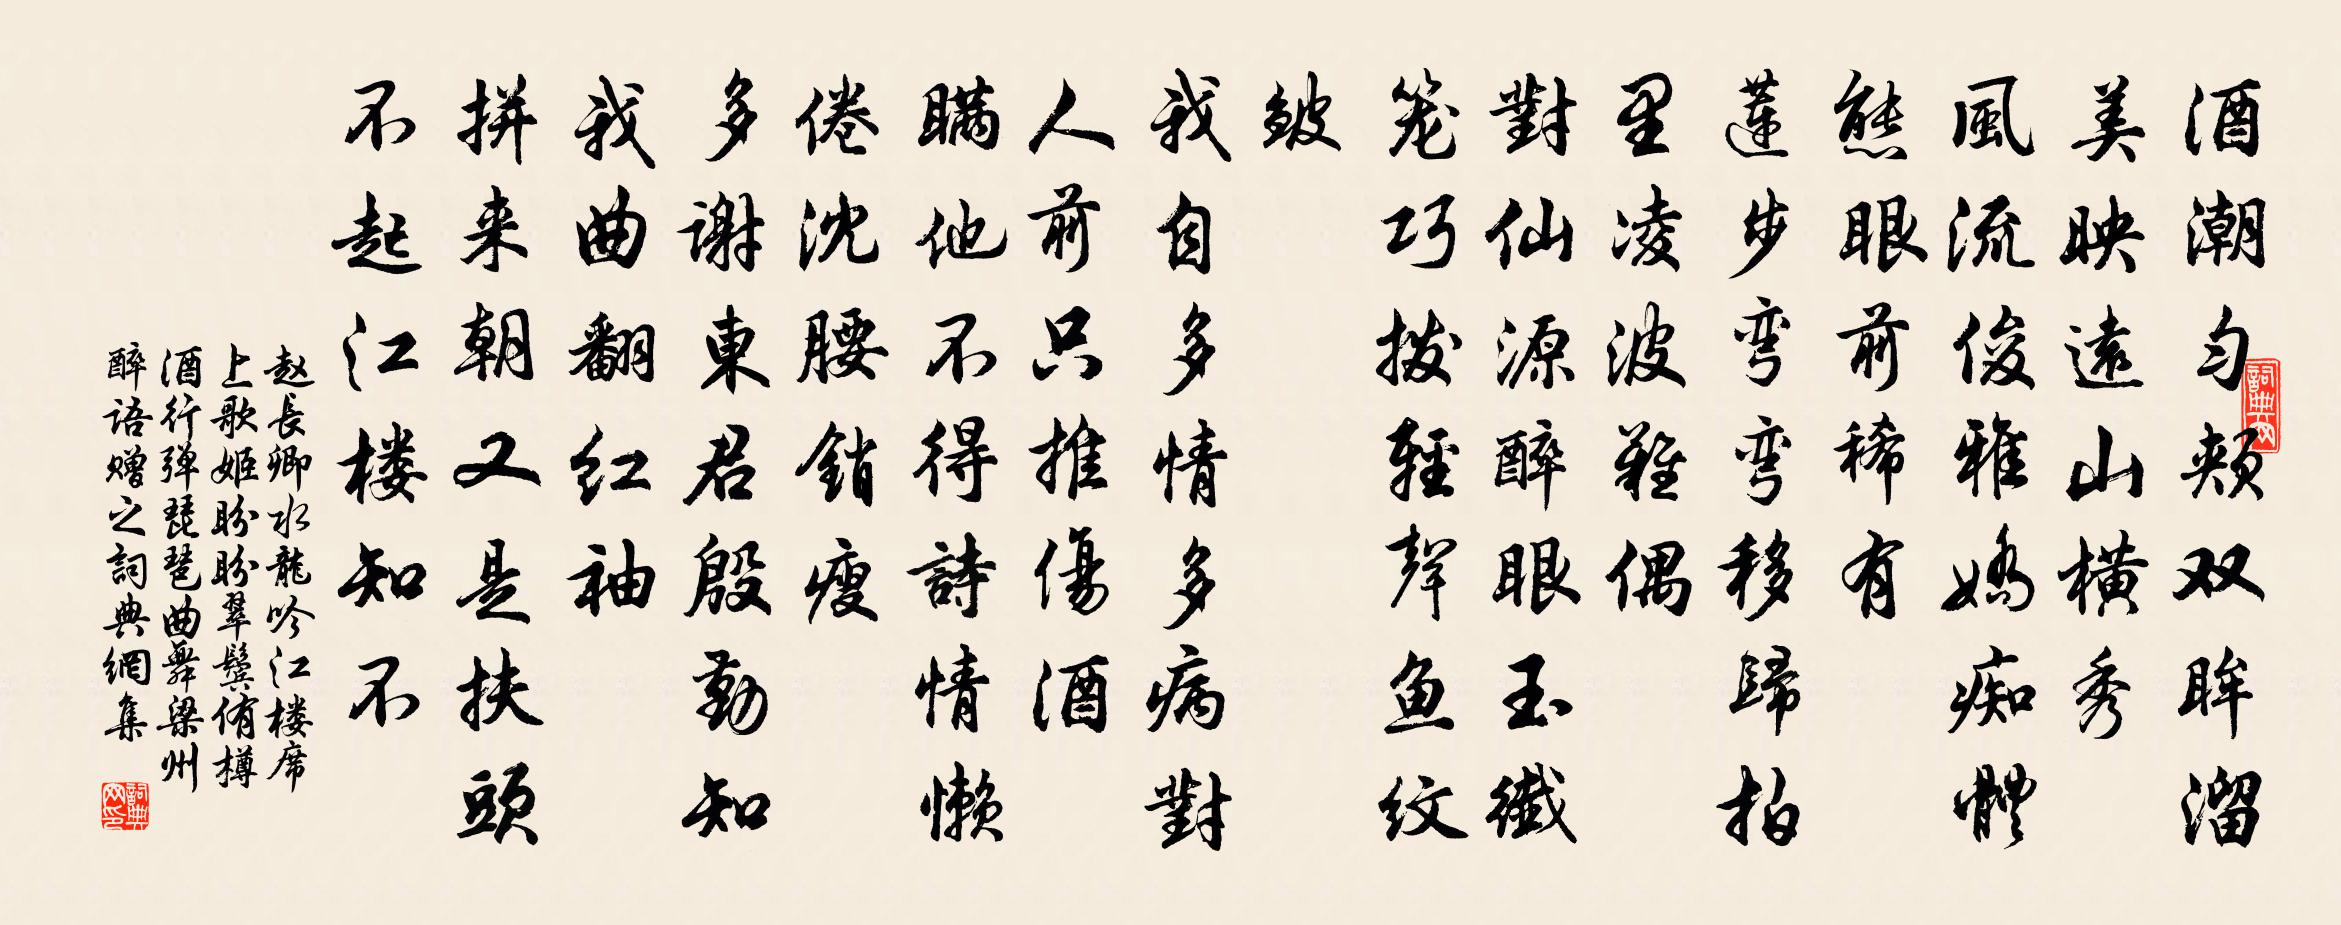 酒潮匀頰双眸溜
美映遠山横秀
風流俊雅嬌痴體
態眼前稀有
蓮步弯弯移歸拍
里凌波難偶
對仙源醉眼玉纖
笼巧拨輕聲鱼纹
皴
我自多情多病對
人前只推傷酒
瞒他不得詩情懒
倦沈腰銷瘦
多謝東君殷勤知
我曲翻红袖
拼来朝又是扶頭
不起江楼知不
赵長卿水龍吟江楼席
上歌姬盼盼翠鬟侑樽
酒行弹琵琶曲舞梁州
醉语赠之詞典網集
詞典网
詞典网印